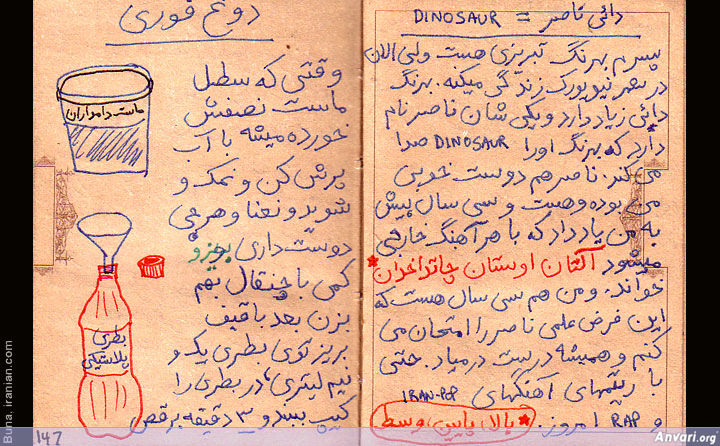 دائی ناصر = DINOSAUR
پسرم بهرنگ تبریزی هست ولی الان
در شهر نیویورک زندگی میکنه. بهرنگ
دائی زیاد دارد و یکی شان ناصر نام
دارد که بهرنگ اورا DINOSAUR صدا
می کند. ناصر هم دوست خوبی
می بوده و هست و سی سال پیش
به من یاد داد که با هر آهنگ خارجی
میشود آلتان اوستان چاتداخدان *
خواند. و من هم سی سال هست که
این فرض علمی ناصر را امتحان می
کنم و همیشه درست درمیاد. حتی
با ریتمهای آهنگهای IRAN-POP
و RAP امروز. * بالا، پایین، وسط
دوغ فوری
وقتی که سطل
ماست نصفش
خورده میشه با آب
پرش کن و نمک و
شوید و نعنا و هر چی
دوست داری بریز و
کمی با چنگال بهم
بزن بعد با قیف
بریز توی بطری یک و
نیم لیتری، در بطری را
کیپ ببند و ۳ دقیقه برقص
ماست دامداران
بطری
پلاستیکی
۱۴۷
Buna. iranian.com
Anvari.org